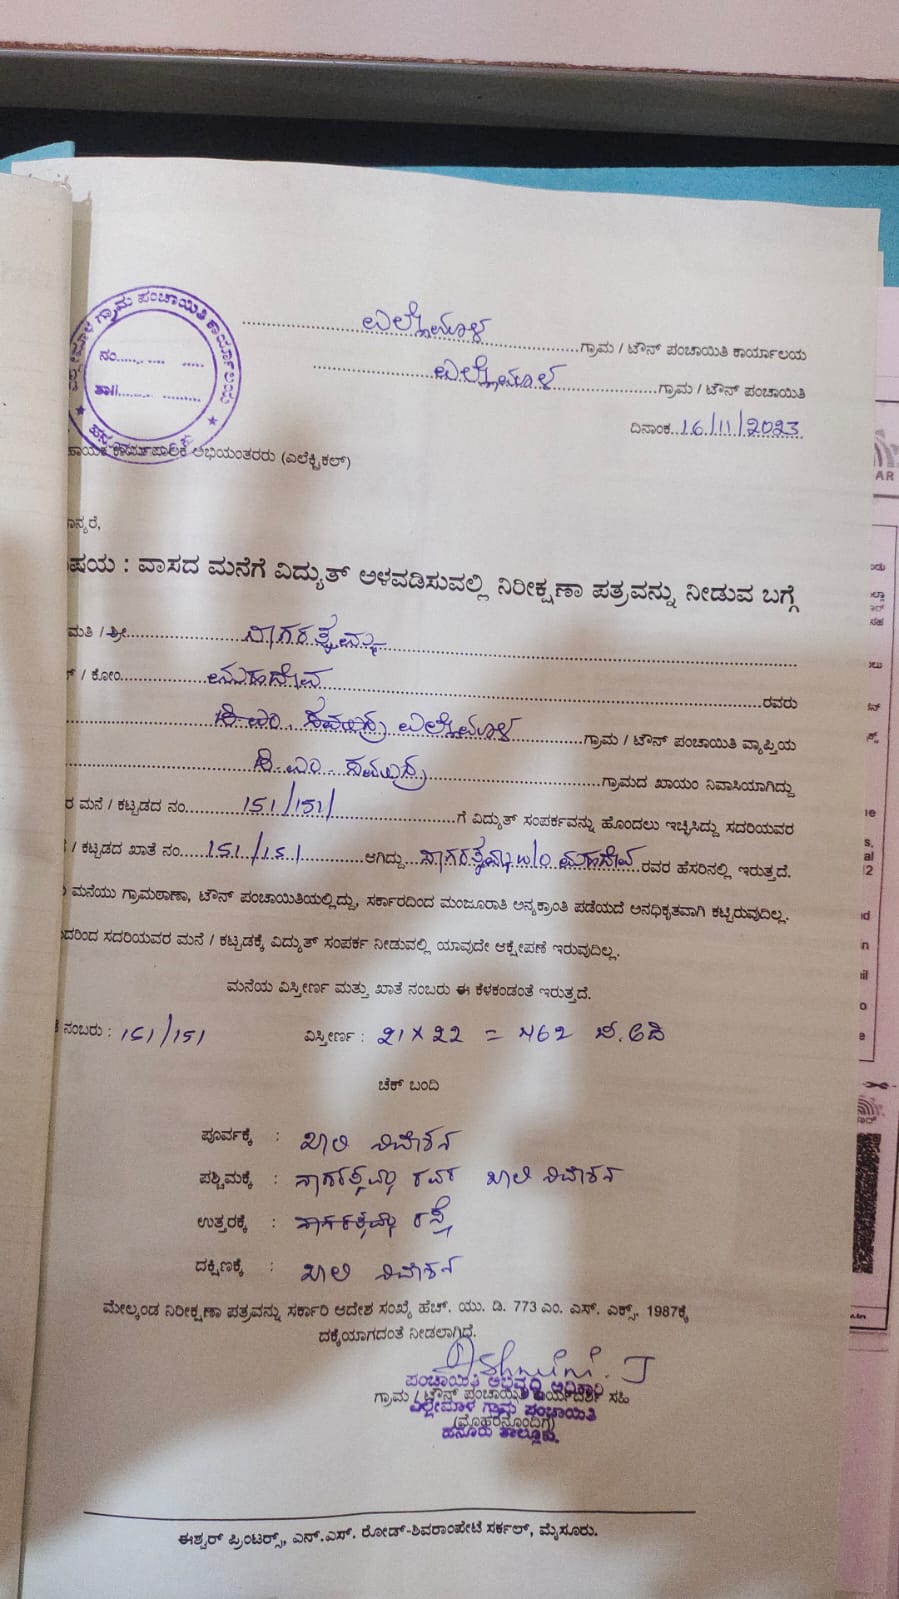 ಗ್ರಾಮ ಪಂಚಾಯಿತಿ ಕಾರ್ಯಾಲಯ
ನಂ......
ತಾ||......
ಎಲ್ಲೇಮಾಳ ಗ್ರಾಮ / ಟೌನ್ ಪಂಚಾಯಿತಿ ಕಾರ್ಯಾಲಯ
ಎಲ್ಲೇಮಾಳ ಗ್ರಾಮ / ಟೌನ್ ಪಂಚಾಯಿತಿ
ದಿನಾಂಕ..16/11/2023
ಕಾರ್ಯಪಾಲಕ ಅಭಿಯಂತರರು (ಎಲೆಕ್ಟ್ರಿಕಲ್)
ನ್ಯರೆ,
ಷಯ : ವಾಸದ ಮನೆಗೆ ವಿದ್ಯುತ್ ಅಳವಡಿಸುವಲ್ಲಿ ನಿರೀಕ್ಷಣಾ ಪತ್ರವನ್ನು ನೀಡುವ ಬಗ್ಗೆ
ಮತಿ / ಶ್ರೀ ನಾಗರತ್ನಮ್ಮ
/ ಕೋಂ ಮಹದೇವ ರವರು
ಎಲ್ಲೇಮಾಳ ಗ್ರಾಮ / ಟೌನ್ ಪಂಚಾಯಿತಿ ವ್ಯಾಪ್ತಿಯ
ಗ್ರಾಮದ ಖಾಯಂ ನಿವಾಸಿಯಾಗಿದ್ದು
ರ ಮನೆ / ಕಟ್ಟಡದ ನಂ. 151/151/ ಗೆ ವಿದ್ಯುತ್ ಸಂಪರ್ಕವನ್ನು ಹೊಂದಲು ಇಚ್ಚಿಸಿದ್ದು ಸದರಿಯವರ
/ ಕಟ್ಟಡದ ಖಾತೆ ನಂ. 151/151 ಆಗಿದ್ದು ನಾಗರತ್ನಮ್ಮ w/o ಮಹದೇವ ರವರ ಹೆಸರಿನಲ್ಲಿ ಇರುತ್ತದೆ.
ಮನೆಯು ಗ್ರಾಮಠಾಣಾ, ಟೌನ್ ಪಂಚಾಯಿತಿಯಲ್ಲಿದ್ದು, ಸರ್ಕಾರದಿಂದ ಮಂಜೂರಾತಿ ಅನ್ಯಕ್ರಾಂತಿ ಪಡೆಯದೆ ಅನಧಿಕೃತವಾಗಿ ಕಟ್ಟಿರುವುದಿಲ್ಲ.
ದರಿಂದ ಸದರಿಯವರ ಮನೆ / ಕಟ್ಟಡಕ್ಕೆ ವಿದ್ಯುತ್ ಸಂಪರ್ಕ ನೀಡುವಲ್ಲಿ ಯಾವುದೇ ಆಕ್ಷೇಪಣೆ ಇರುವುದಿಲ್ಲ.
ಮನೆಯ ವಿಸ್ತೀರ್ಣ ಮತ್ತು ಖಾತೆ ನಂಬರು ಈ ಕೆಳಕಂಡಂತೆ ಇರುತ್ತದೆ.
ನಂಬರು : 151/151 ವಿಸ್ತೀರ್ಣ : 21 X 22 = 462 ಚ.ಅಡಿ
ಚೆಕ್ ಬಂದಿ
ಪೂರ್ವಕ್ಕೆ : ಖಾಲಿ ನಿವೇಶನ
ಪಶ್ಚಿಮಕ್ಕೆ : ನಾಗರತ್ನಮ್ಮ ರವರ ಖಾಲಿ ನಿವೇಶನ
ಉತ್ತರಕ್ಕೆ : ರಸ್ತೆ
ದಕ್ಷಿಣಕ್ಕೆ : ಖಾಲಿ ನಿವೇಶನ
ಮೇಲ್ಕಂಡ ನಿರೀಕ್ಷಣಾ ಪತ್ರವನ್ನು ಸರ್ಕಾರಿ ಆದೇಶ ಸಂಖ್ಯೆ ಹೆಚ್. ಯು. ಡಿ. 773 ಎಂ. ಎಸ್. ಎಕ್ಸ್. 1987ಕ್ಕೆ
ದಕ್ಕೆಯಾಗದಂತೆ ನೀಡಲಾಗಿದೆ.
Ashwini. J
ಪಂಚಾಯಿತಿ ಅಭಿವೃದ್ಧಿ ಅಧಿಕಾರಿ
ಗ್ರಾಮ / ಟೌನ್ ಪಂಚಾಯಿತಿ ಕಾರ್ಯದರ್ಶಿ ಸಹಿ
ಎಲ್ಲೇಮಾಳ ಗ್ರಾಮ ಪಂಚಾಯಿತಿ
(ಮೊಹರಿನೊಂದಿಗೆ)
ಹನೂರು ತಾಲ್ಲೂಕು.
ಈಶ್ವರ್ ಪ್ರಿಂಟರ್ಸ್, ಎನ್.ಎಸ್. ರೋಡ್-ಶಿವರಾಂಪೇಟೆ ಸರ್ಕಲ್, ಮೈಸೂರು.